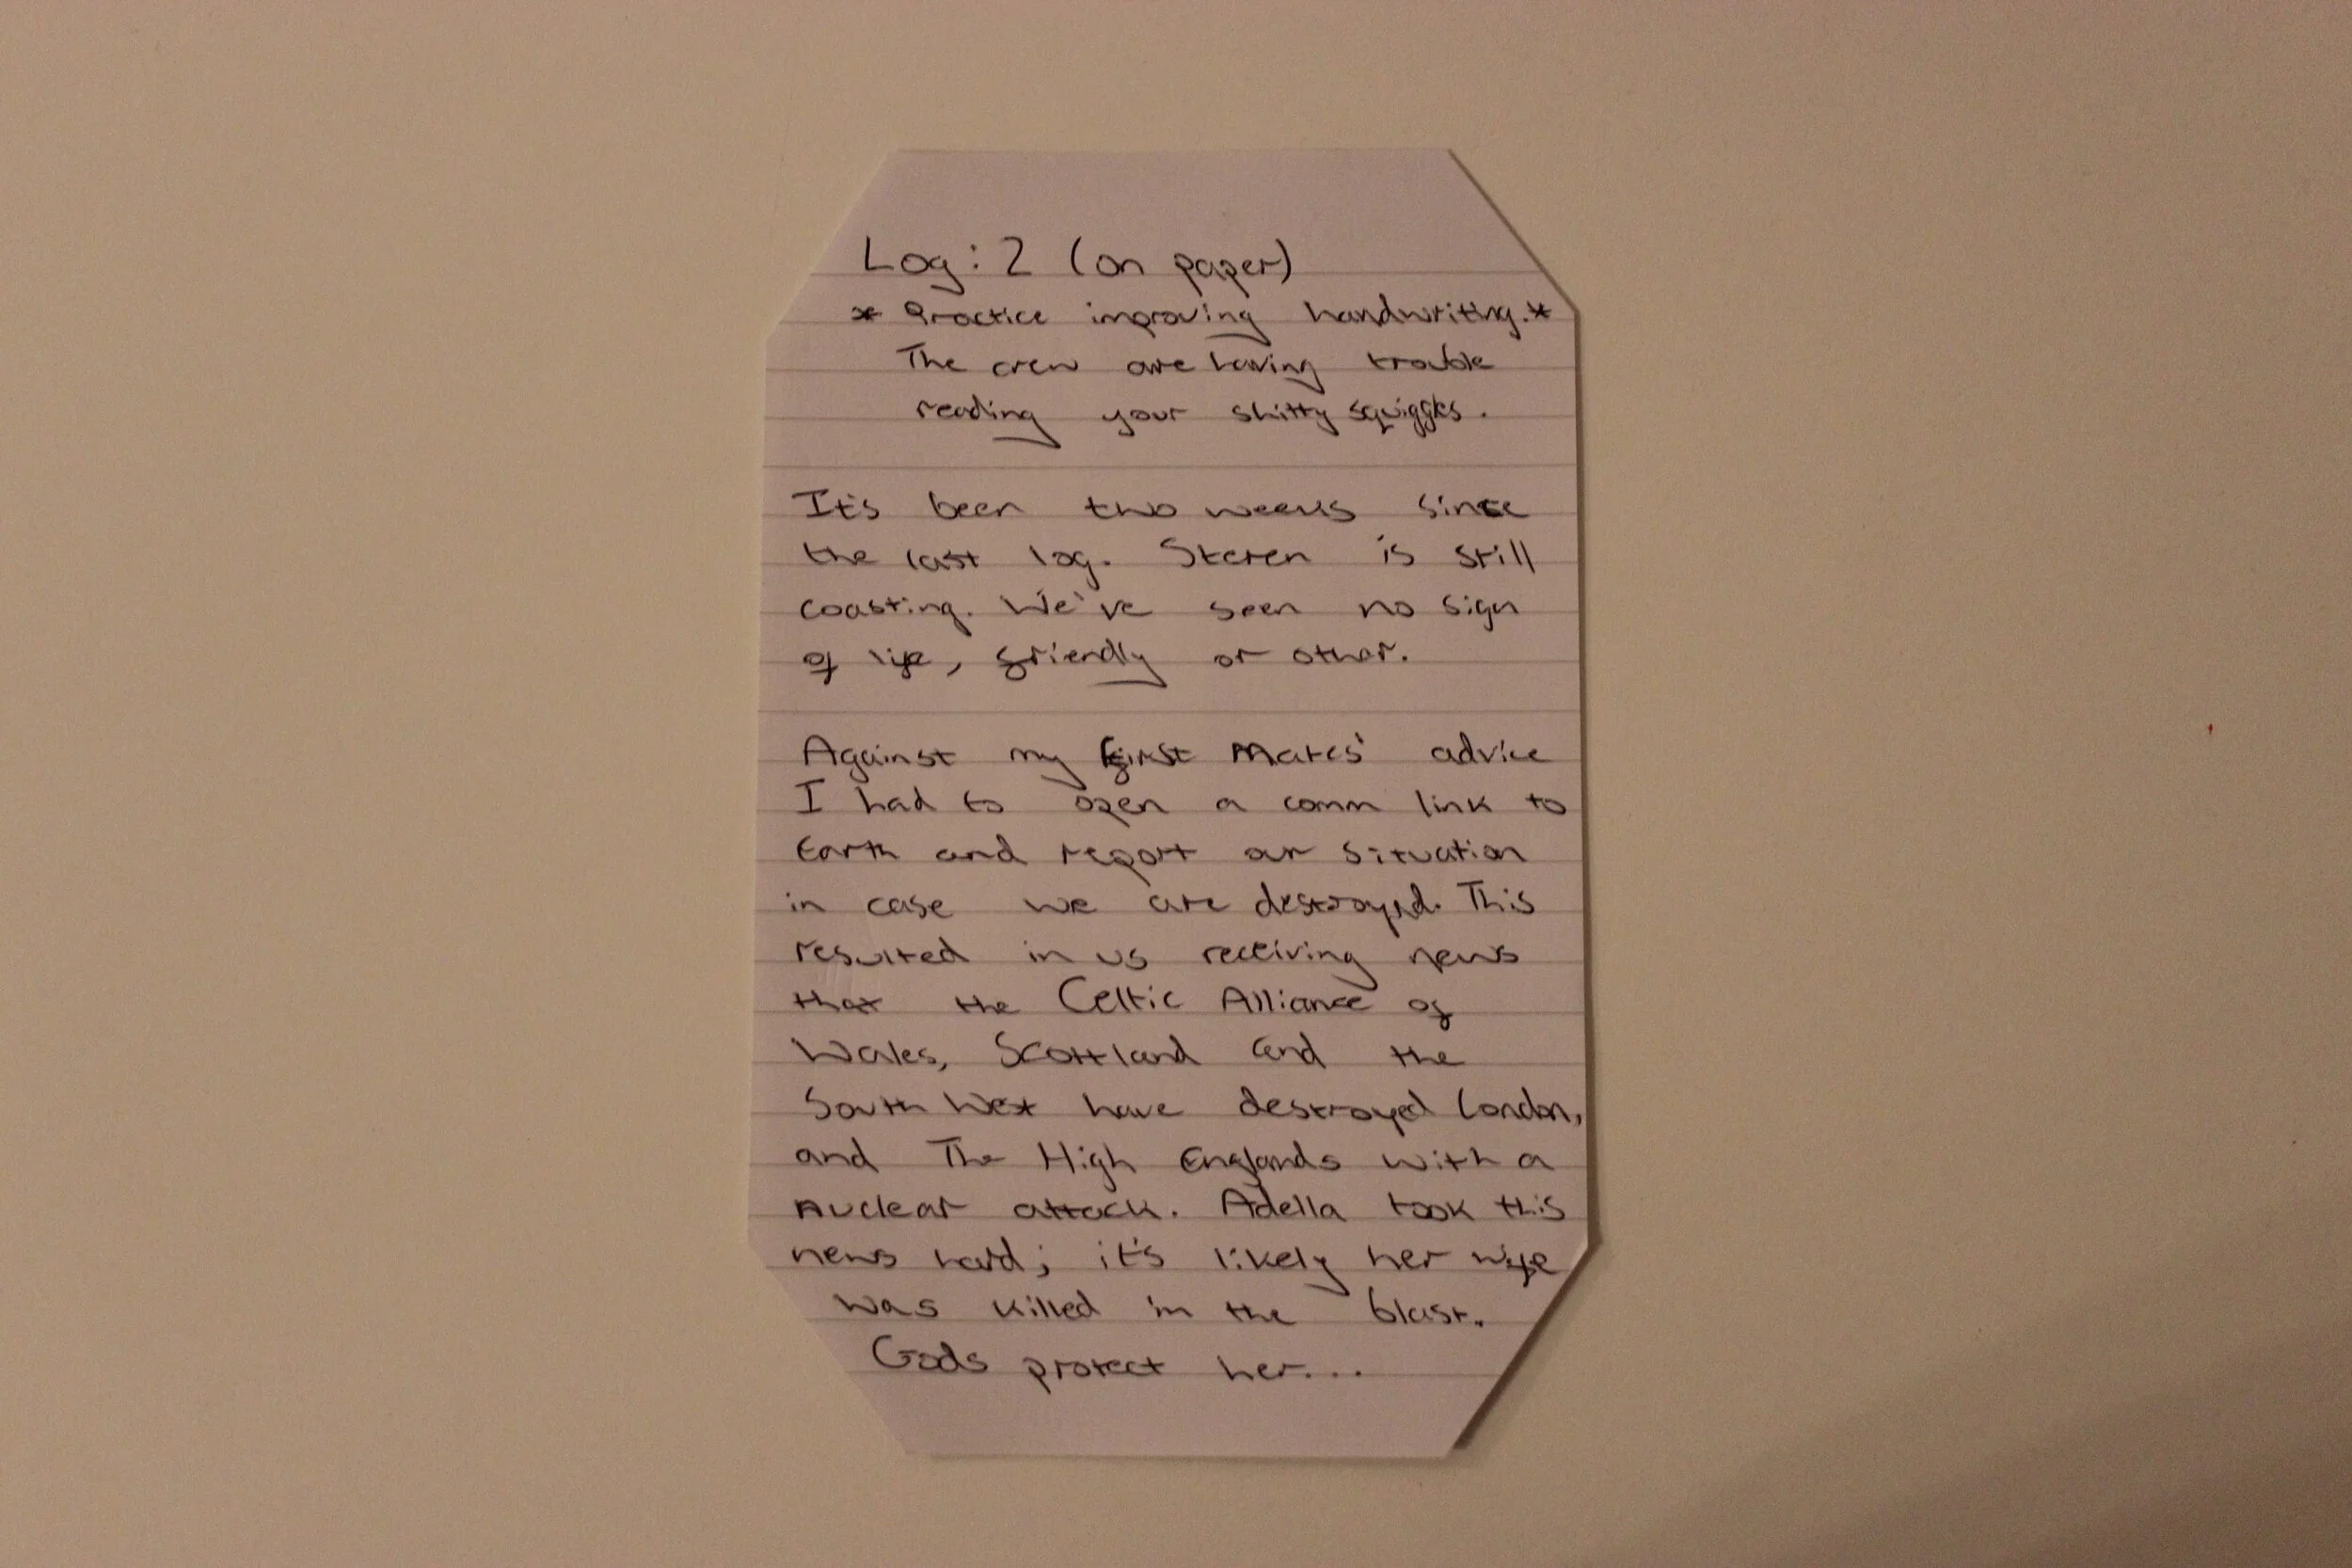 Log: 2 (on paper)
* Practice improving handwriting.*
The crew are having trouble
reading your shitty squiggles.
It's been two weeks since
the last log. Steren is still
coasting. We've seen no sign
of life, friendly or other.
Against my first Mates' advice
I had to open a comm link to
Earth and report our situation
in case we are destroyed. This
resulted in us receiving news
that the Celtic Alliance of
Wales, Scottland and the
South West have destroyed London,
and The High Englands with a
nuclear attack. Adella took this
news hard; it's likely her wife
was killed in the blast.
Gods protect her...